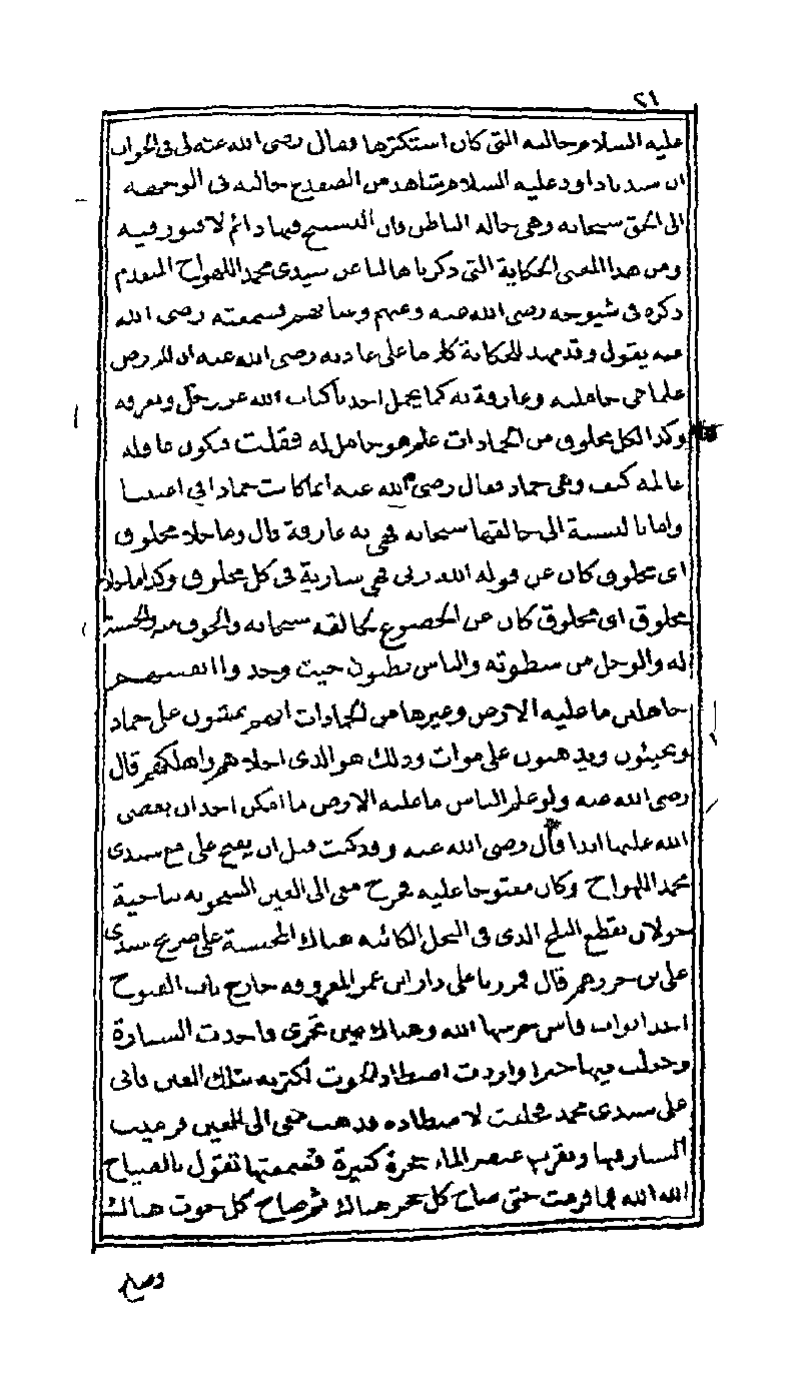 ٢١
عليه السلام وحالته التي كان استكثرها فقال رضي الله عنه لي في الجواب
ان سيدنا داود عليه السلام شاهد من الضفدع حالته في الوجهة
الى الحق سبحانه وهي حالة الباطن فان التسبيح فيها دائم لا فتور فيه
ومن هذا المعنى الحكاية التي ذكرناها لنا عن سيدي محمد اللهواج المتقدم
ذكره في شيوخه رضي الله عنه وعنهم ونفعنا بهم فسمعته رضي الله
عنه يقول وقد مهد للحكاية كلاما على عادته رضي الله عنه ان للارض
علما هي حاملته وعارفة به كما يحمل احدنا كتاب الله عز وجل ويعرفه
وكذا لكل مخلوق من الجمادات علم هو حامل له فقلت فتكون عاقلة
عالمة كيف وهي جماد فقال رضي الله عنه انما كانت جمادا في اعيننا
واما بالنسبة الى خالقها سبحانه فهي به عارفة قال وما خلا مخلوق
اي مخلوق كان عن قوله الله ربي فهي سارية في كل مخلوق وكذا ما خلا
مخلوق اي مخلوق كان عن الخضوع لخالقه سبحانه والخوف منه والخشية
له والوجل من سطوته والناس يظنون حيث وجدوا انفسهم
جاهلين ما عليه الارض وغيرها من الجمادات انهم يمشون على جماد
ويجيئون ويذهبون على موات وذلك هو الذي اخلاهم واهلكهم قال
رضي الله عنه ولو علم الناس ما عليه الارض ما امكن احد ان يعصى
الله عليها ابدا قال رضي الله عنه وقد كنت قبل ان يفتح علي مع سيدي
محمد اللهواج وكان مفتوحا عليه فخرج معي الى العين بناحية
خولان نقطع البلح الذي في النخل الكائنة هناك المحبسة على ضريح سيدي
علي بن حرزهم قال فمررنا على دار ابن عمر المعروفة خارج باب الفتوح
احد ابواب فاس حرسها الله وهناك عين تجري فاخذت السنارة
وجعلت فيها خبزا واردت اصطياد الحوت لكثرته بتلك العين فابى
علي سيدي محمد فحلفت لاصطاده فذهب معي الى العين فرميت
السنارة فيها وبقرب عنصر الماء حجرة كبيرة فسمعتها تقول بالصياح
الله الله فما فرغت حتى صاح كل حجر هناك ثم صاح كل حوت هنالك